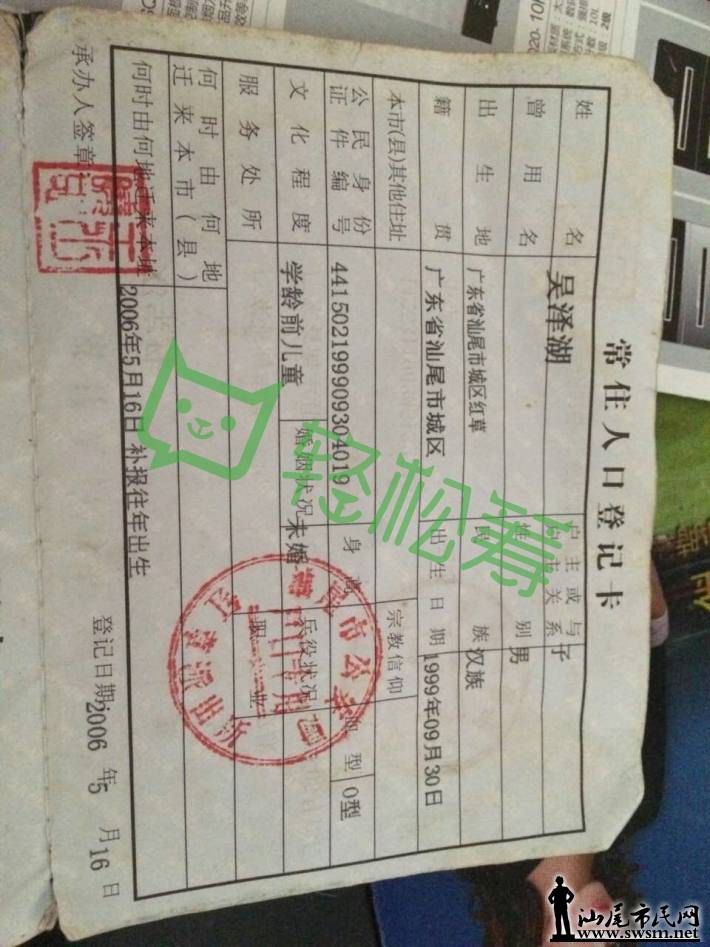 常住人口登记卡
姓名 吴泽湖 户主或与户主关系 子
曾用名 性别 男
出生地 广东省汕尾市城区红草 民族 汉族
籍贯 广东省汕尾市城区 出生日期 1999年09月30日
本市(县)其他住址 宗教信仰
公民身份证件编号 441502199909304019 身高 血型 O型
文化程度 学龄前儿童 婚姻状况 未婚 兵役状况
服务处所 职业
何时由何地迁来本市(县)
何时由何地迁来本址 2006年5月16日 补报往年出生
承办人签章: 登记日期: 2006年5月16日
轻松筹
汕尾市民网
www.swsm.net